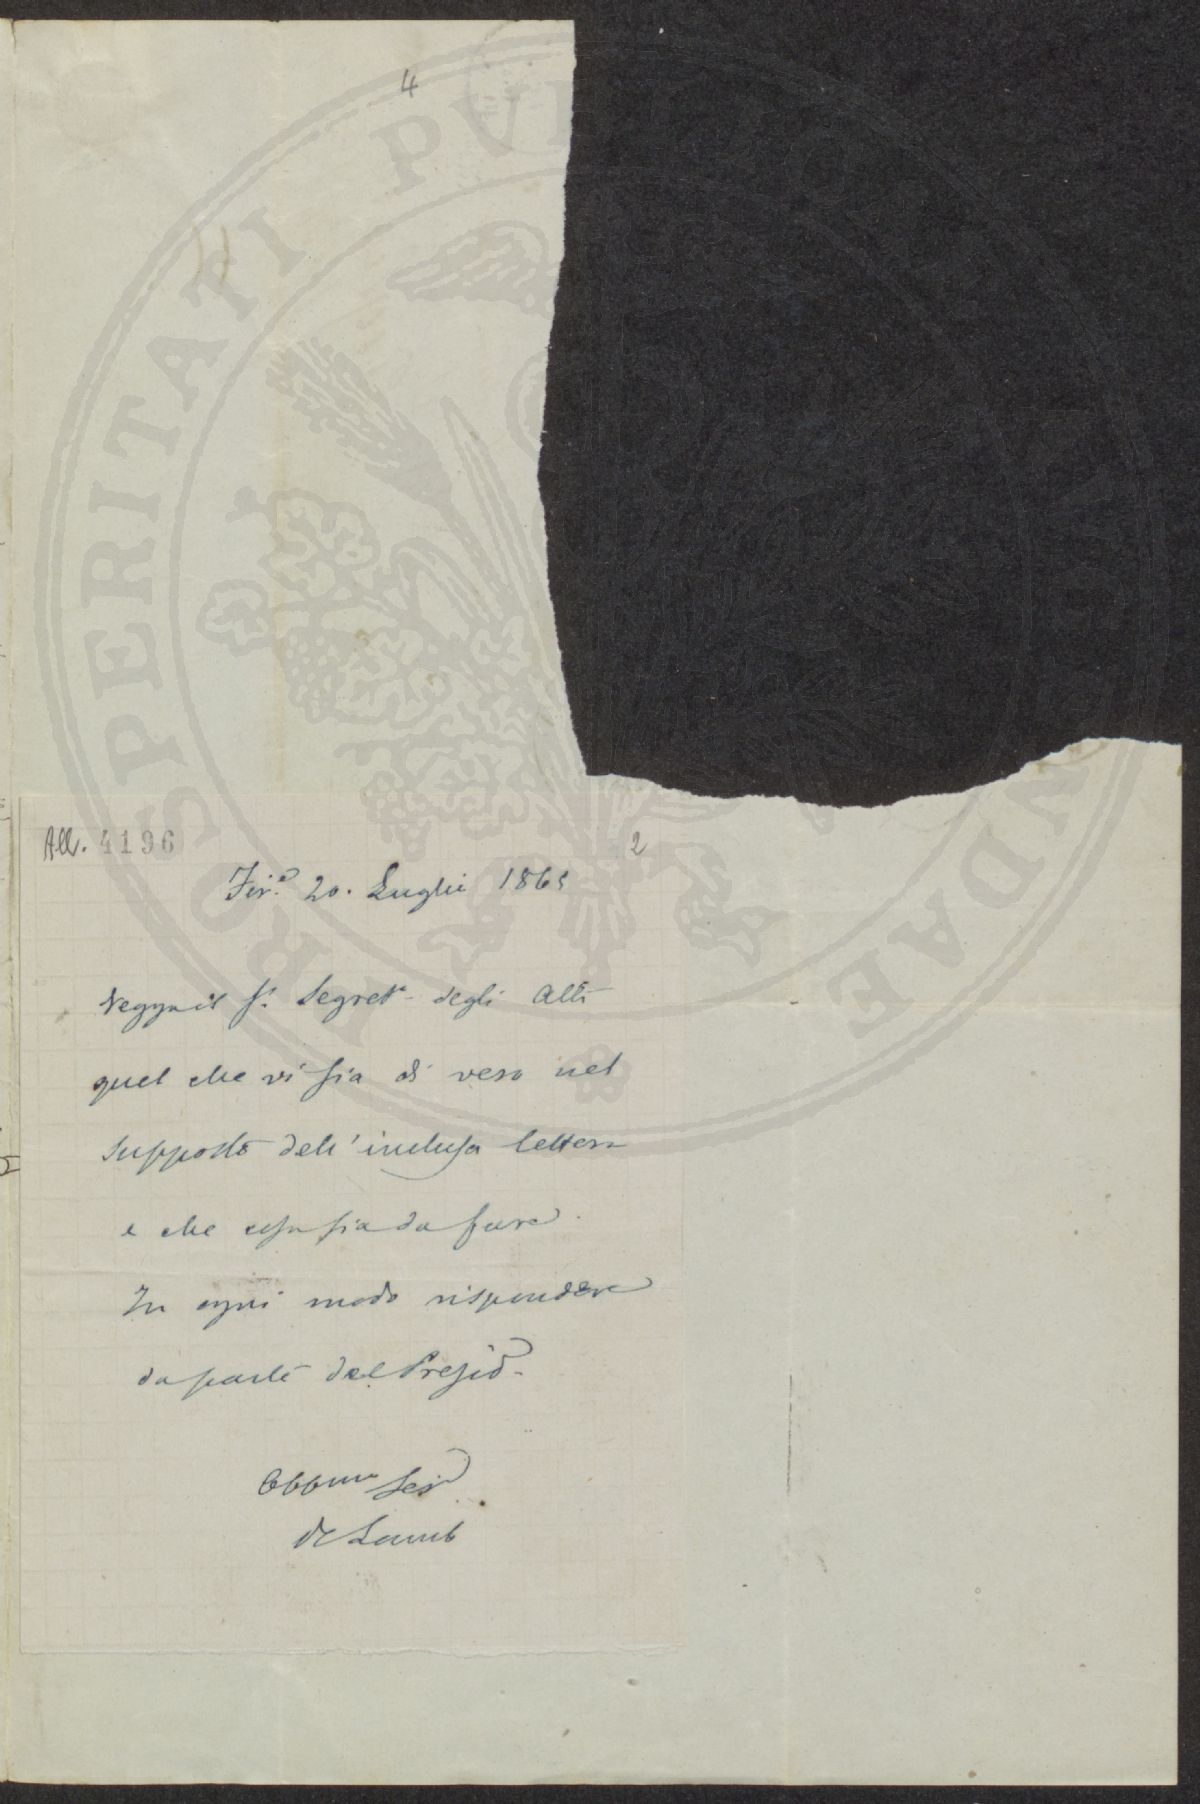 4
All. 4196
2
Fir.e 20. Luglio 1865
Vegga il S.r Segret.o degli Atti
quel che vi sia di vero nel
supposto dell'inclusa lettera
e che cosa sia da fare.
In ogni modo rispondere
da parte del Presid.
Obbmo Ser
PROSPERITATI PVBLICAE AVGENDAE